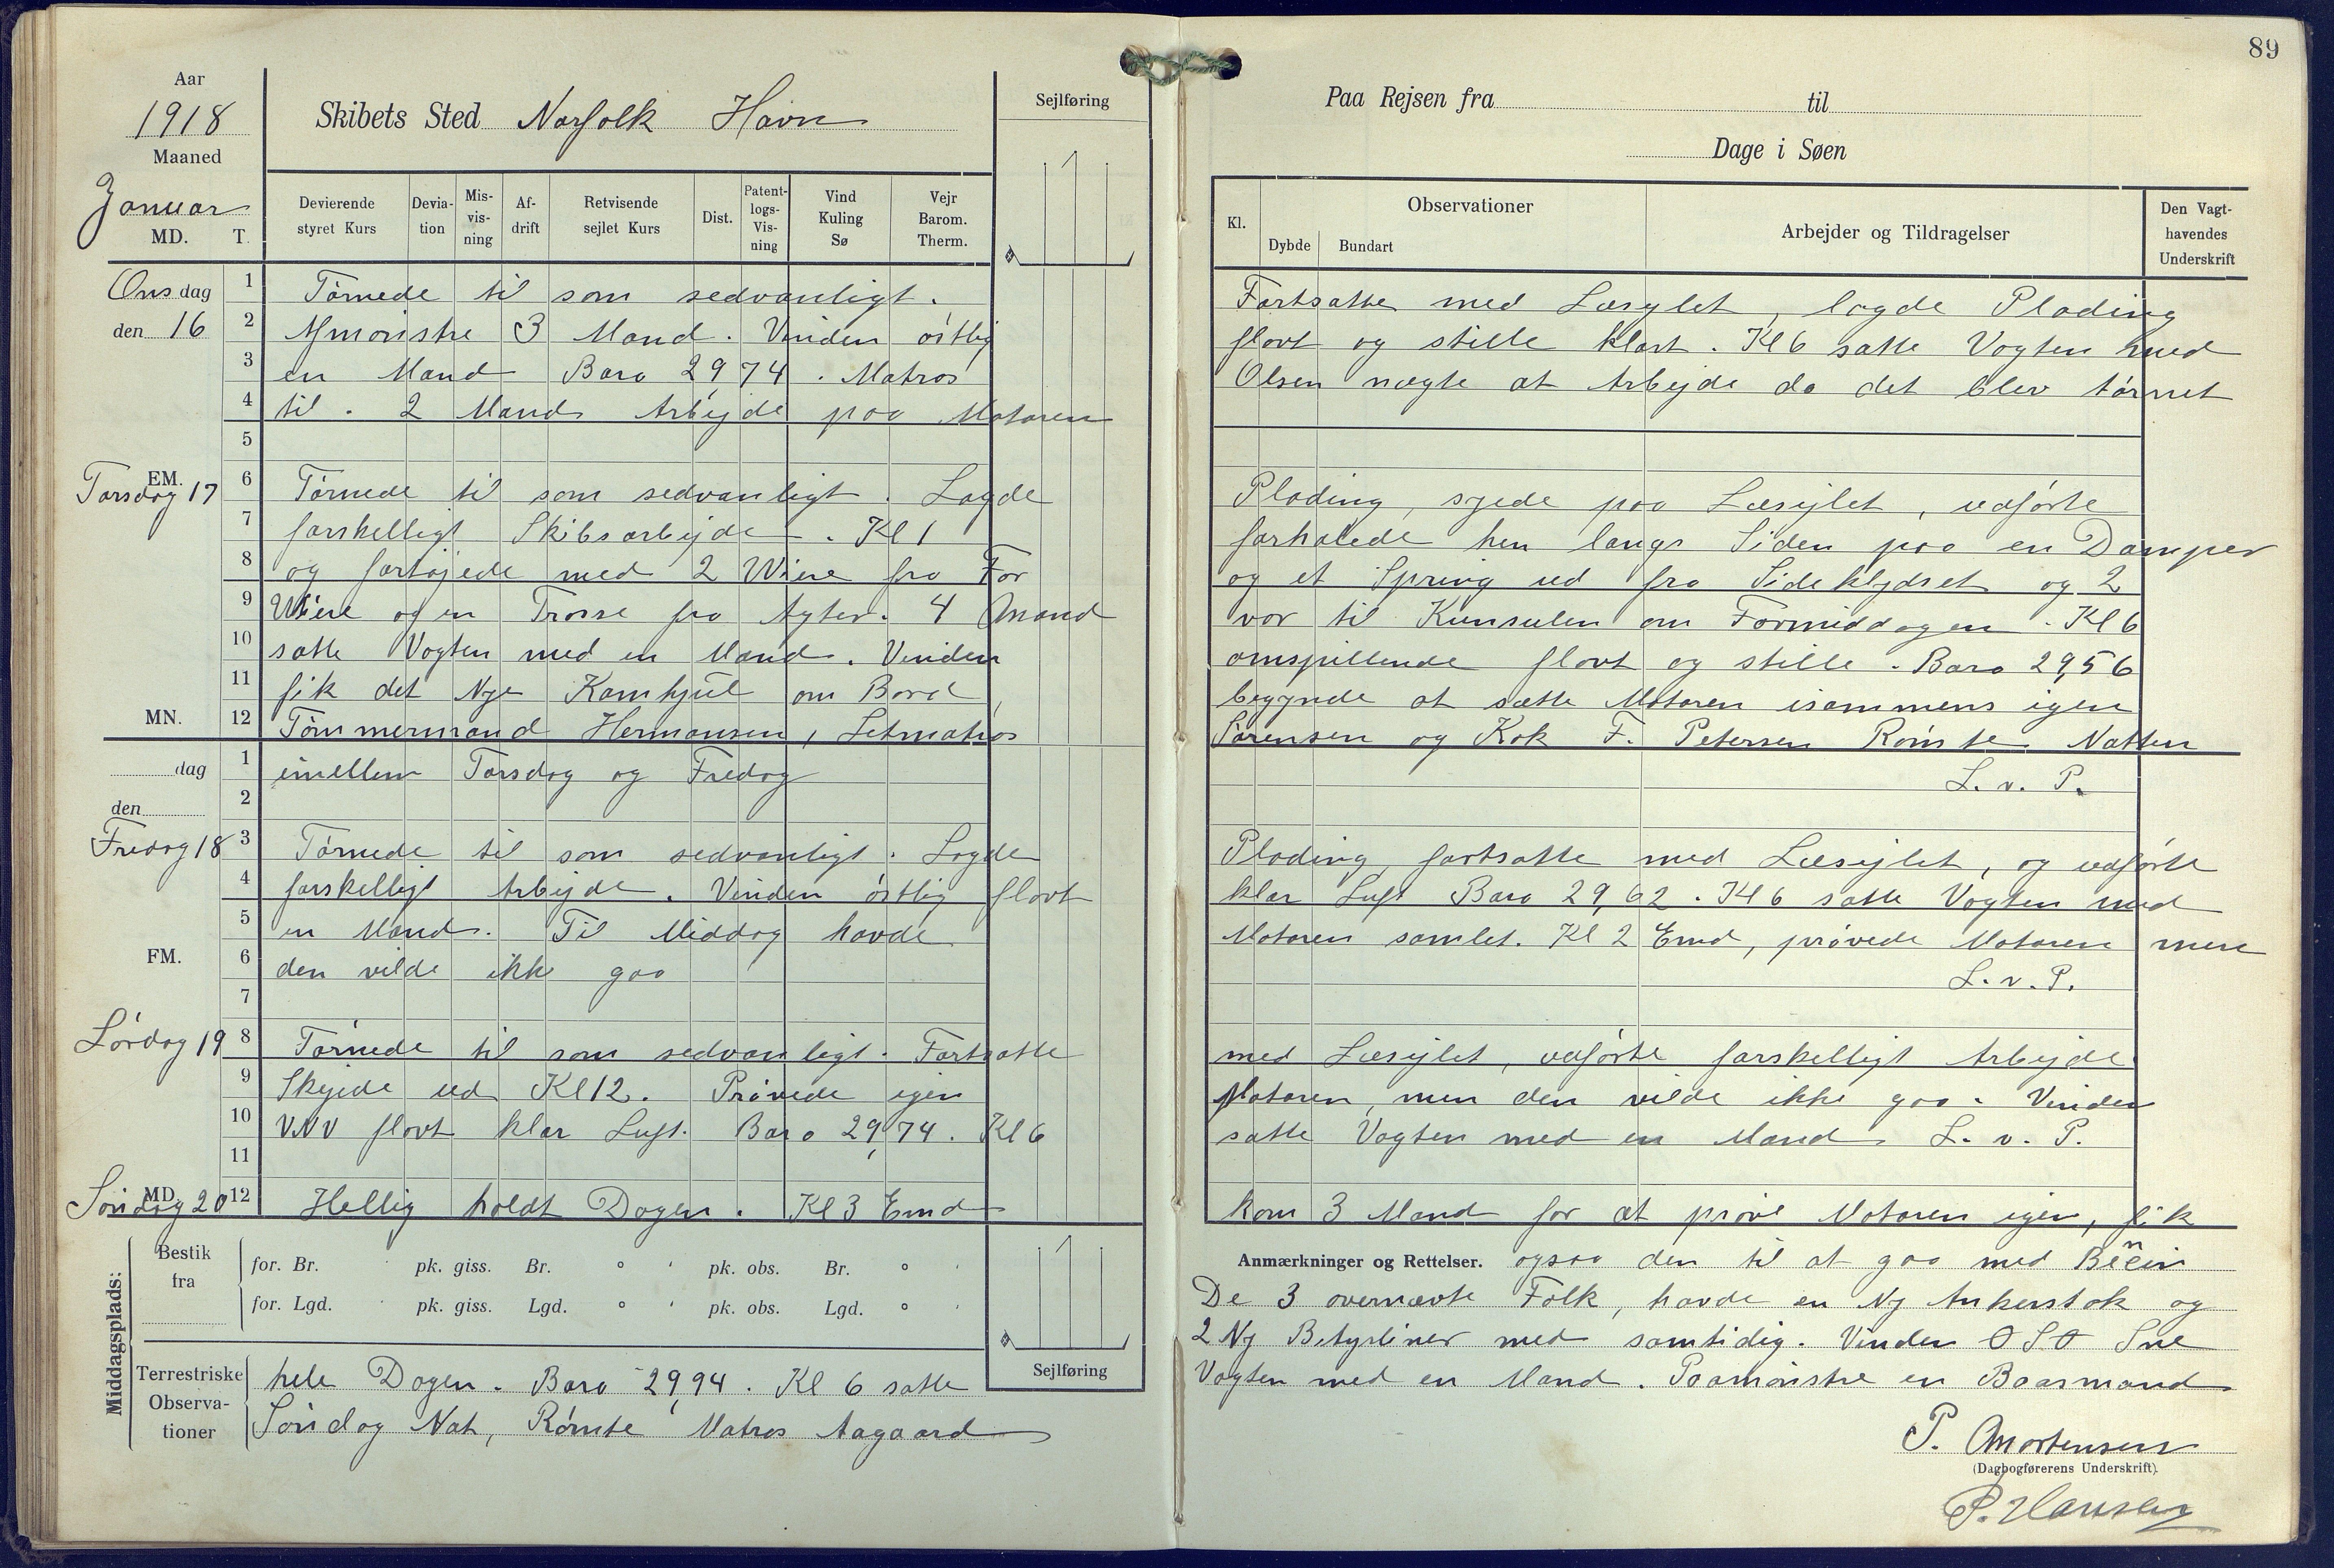 89
Aar
1918
Maaned
Januar
MD. T.
Skibets Sted Norfolk Havn
Sejlføring
Paa Rejsen fra til
Dage i Søen
Devierende styret Kurs
Devia-tion
Mis-vis-ning
Af-drift
Retvisende sejlet Kurs
Dist.
Patent-logs-Vis-ning
Vind Kuling Sø
Vejr Barom. Therm.
Kl.
Observationer
Dybde Bundart
Arbejder og Tildragelser
Den Vagt-havendes Underskrift
Onsdag 1 Törnede til som sedvanligt. Fortsatte med Læsejlet, lagde Plading
den 16 2 Afmönstre 3 Mand. Vinden östlig flovt og stille klart. Kl 6 satte Vagten med
3 en Mand Baro 29,74. Matros Olsen nægte at Arbejde da det blev törnet
4 til. 2 Mand Arbejde paa Motoren
5
EM.
Torsdag 17 6 Törnede til som sedvanligt. Lagde Plading, syede paa Læsejlet, udförte
7 forskelligt Skibsarbejde. Kl 1 forhalede hen langs Siden paa en Damper
8 og fortöjede med 2 Wiere fra For og et Spring ud fra Sideklydset og 2
9 Wiere og en Trosse fra Agter. 4 Mand var til Kunsulen om Formiddagen. Kl 6
10 satte Vagten med en Mand. Vinden omspillende flovt og stille. Baro 29,56
11 fik det Nye Kamhjul om Bord, begynde at sætte Motoren isammens igen
MN. 12 Tömmermand Hermansen, Letmatros Sörensen og Kok F. Petersen Römte Natten
dag 1 imellem Torsdag og Fredag
L. v. P.
den 2
Fredag 18 3 Törnede til som sedvanligt. Lagde Plading, fortsatte med Læsejlet, og udförte
4 forskelligt Arbejde. Vinden östlig flovt klar Luft Baro 29,62. Kl 6 satte Vagten med
5 en Mand. Til Middag havde Motoren samlet. Kl 2 Emd, prövede Motoren men
FM. 6 den vilde ikke gaa
L. v. P.
7
Lördag 19 8 Törnede til som sedvanligt. Fortsatte med Læsejlet, udförte forskelligt Arbejde
9 Skejede ud Kl 12. Prövede igen Motoren, men den vilde ikke gaa. Vinden
10 VNV flovt klar Luft. Baro 29,74. Kl 6 satte Vagten med en Mand L. v. P.
11
MD.
Söndag 20 12 Hellig holdt Dagen. Kl 3 Emd kom 3 Mand for at pröve Motoren igen, fik
Anmærkninger og Rettelser. ogsaa den til at gaa med
De 3 overnævte Folk, havde en Ny Ankerstok og
2 Ny med samtidig. Vinden OSO Sne
Middagsplads:
Bestik fra
for. Br. pk. giss. Br. ° ' pk. obs. Br. ° '
for. Lgd. pk. giss. Lgd. ° ' pk. obs. Lgd. ° '
Sejlføring
Terrestriske Observa-tioner
hele Dagen. Baro 29,94. Kl 6 satte Vagten med en Mand. Paamönstre en Baasmand
Söndag Nat, Römte Matros Aagaard
P. Mortensen
(Dagbogførerens Underskrift).
P. Hansen